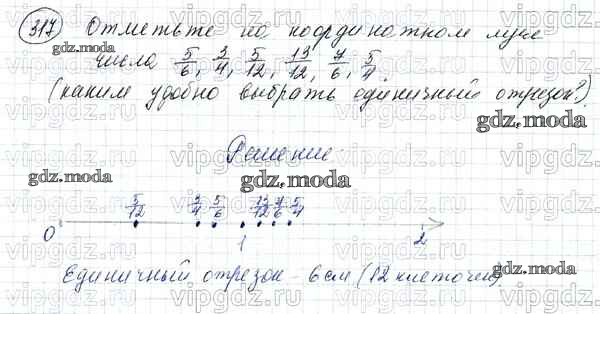 317 Отметьте на координатном луче
числа 5/6, 3/4, 5/12, 13/12, 7/6, 5/4.
(каким удобно выбрать единичный отрезок?)
Решение.
5/12 3/4 5/6 13/12 7/6 5/4
0 1 2
Единичный отрезок - 6 см (12 клеточек)
gdz.moda
gdz.moda
gdz.moda
gdz.moda
gdz.moda
gdz.moda
vipgdz.ru